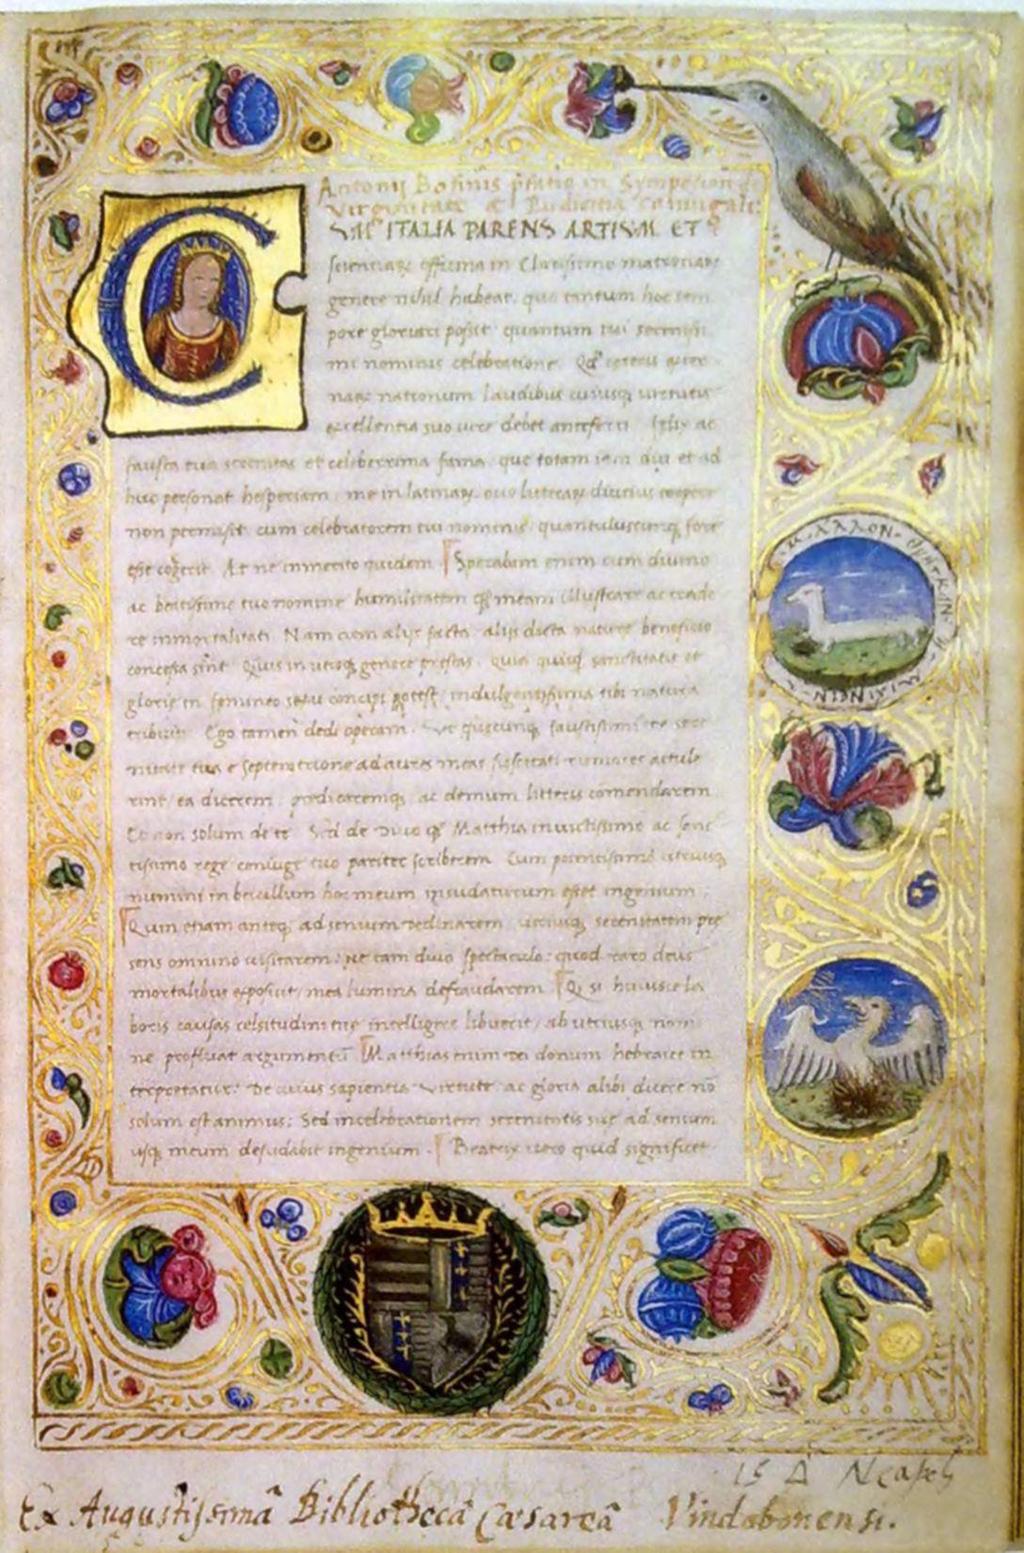 Antonij Bonfinis p̃fatio in Symposion de
Virginitate et Pudicitia Coniugali:
CVM ITALIA PARENS ARTIVM ET
scientiarꝝ officina in Clarissimo matronarꝝ
genere nihil habeat, quo tantum hoc tem
pore gloriari possit quantum tui serenissi
mi nominis celebratione
narꝝ nationum laudibus cuiusqꝫ virtutis
excellentia suo iure debet anteferri felix ac
fausta tua serenitas et celeberrima fama, que totam iam diu et ad
huc personat hesperiam, me in latinarꝝ
non permisit cum celebratorem tui nominis, quantuluscunqꝫ fore
esse coegerit. At ne inmerito quidem Sperabam enim cum diuino
ac beatissimo tuo nomine humilitatem meam illustrare ac trade
re inmortalitati. Nam cum alijs facta alijs dicta nature beneficio
concessa sint. Quis in utroqꝫ genere prestas. quia quicqd̃ sanctitatis et
glorie in femineo sexu concipi potest, indulgentissima tibi natura
tribuit. Ego tamen dedi operam. Ut quecunqꝫ faustissimi te sere
nitate tua e septentrione ad aures meas suscitati rumores actule
rint, ea dicerem, predicaremqꝫ ac demum litteris comendarem
Et non solum de te Sed de Diuo qꝫ Matthia inuictissimo ac sanc
tissimo rege coniuge tuo pariter scriberem Cum potentissimo utriusqꝫ
numini in bacillum hoc meum insudaturum esset ingenium.
Quin etiam anteqꝫ ad senium declinarem, utriusqꝫ serenitatem pre
sens omnino uisitarem: Ne tam diuo spectaculo: quod raro deus
mortalibus exposuit, mea lumina defraudarem Q si huiusce la
boris causas celsitudini tue intelligere libuerit, ab utriusqꝫ nomi
ne profluat argumentũ Matthias enim Dei donum hebraice in
terpretatur: De cuius sapientia Virtute ac gloria alibi dicere nõ
solum est animus: Sed in celebrationem serenitatis sue ad senium
usqꝫ meum desudabit ingenium. Beatrix uero quid significet
15 Δ Neapel
Ex Augustissimâ Bibliothecâ Cæsareâ Vindobonensi.